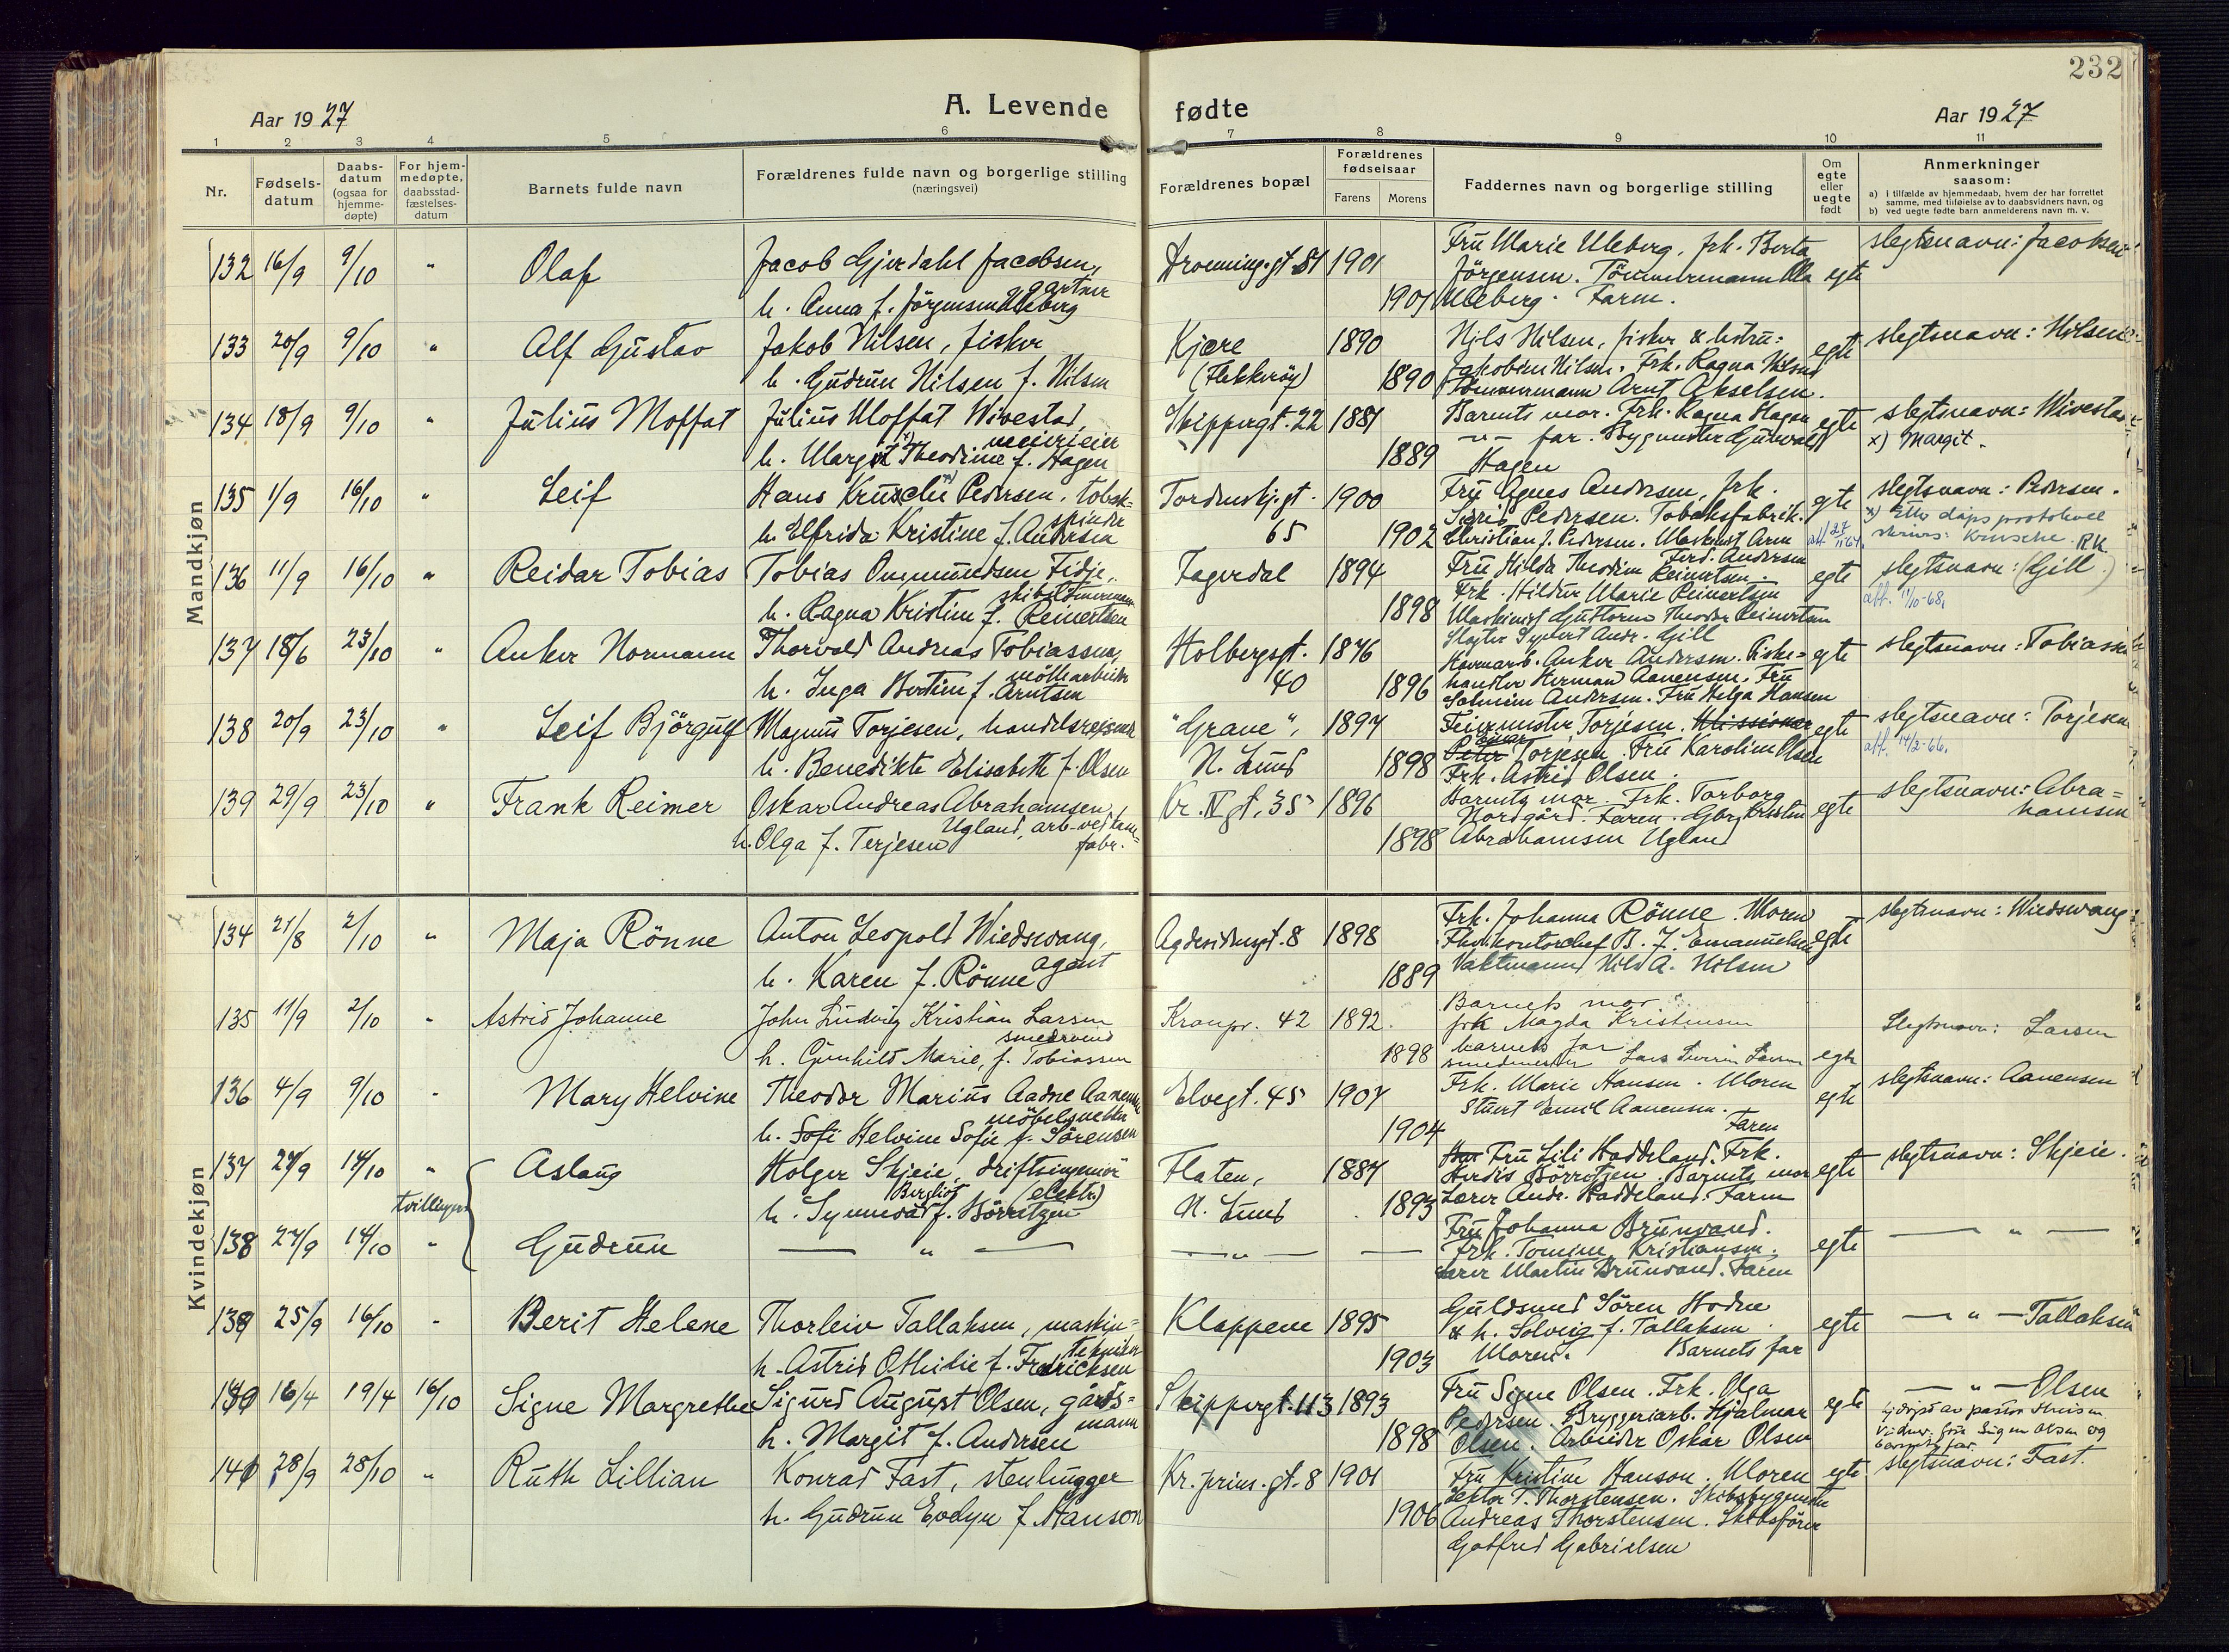 232
Aar 1927
A. Levende
fødte
Aar 1927
1 2 3 4 5 6 7 8 9 10 11
Nr.
Fødsels-
datum
Daabs-
datum
(ogsaa for
hjemme-
døpte)
For hjem-
medøpte,
daabsstad-
fæstelses-
datum
Barnets fulde navn
Forældrenes fulde navn og borgerlige stilling
(næringsvei)
Forældrenes bopæl
Forældrenes
fødselsaar
Farens Morens
Faddernes navn og borgerlige stilling
Om
egte
eller
uegte
født
Anmerkninger
saasom:
a) i tilfælde av hjemmedaab, hvem der har forrettet
samme, med tilføielse av to daabsvidners navn, og
b) ved uegte fødte barn anmelderens navn m. v.
Mandkjøn
132 16/9 9/10 " Olaf Jacob Gjerdahl Jacobsen, Dronning.gt. 81 1901 Fru Marie Uleberg, frk. Berta slegtsnavn: Jacobsen
gartner Jörgensen. Tömmermann Ola egte
h. Anna f. Jörgensen Uleberg 1901 Uleberg. Faren.
133 20/9 9/10 " Alf Gustav Jakob Nilsen, fisker Kjære 1890 Nils Nilsen, fisker & hustru: egte slegtsnavn: Nilsen
h. Gudrun Nilsen f. Nilsen (Flekkeröy) 1890 Jakobine Nilsen. Frk. Ragna Nilsen
Tömmermann Arnt Akselsen.
134 18/9 9/10 " Julius Moffat Julius Moffat Wivestad, Skippergt. 22 1881 Barnets mor. Frk. Ragna Hagen egte slegtsnavn: Wivestad
meierieier -"- far. Bygmester Gunvald x) Margit.
h. Margit Theodine f. Hagen 1889 Hagen
135 1/9 16/10 " Leif Hans Krusche Pedersen, tobak- Tordenskj.gt. 1900 Fru Agnes Andersen, frk. egte slegtsnavn: Pedersen.
spinder Sigrid Pedersen. Tobaksfabrik. x) Etter dåpsprotokoll
h. Elfrida Kristine f. Andersen 65 1902 Christian J. Pedersen. Maskinist Arne skrives: Krusche. RK.
Ferd. Andersen
136 11/9 16/10 " Reidar Tobias Tobias Ommundsen Fidje, Fagerdal 1894 Fru Hilda Theodine Reinertsen. egte slegtsnavn: (Gill)
skibstömmermann Frk. Hildur Marie Reinertsen att. 11/10-68,
h. Ragna Kristine f. Reinertsen 1898 Maskinist Guttorm Theodor Reinertsen
Slagter Sigvert Andr. Gill
137 18/6 23/10 " Anker Normann Thorvald Andreas Tobiassen, Holbergsgt. 1876 Havnearb. Anker Andersen. Fiske= egte slegtsnavn: Tobiassen
möllearbeider handler Herman Aanensen. Fru
h. Inga Bertine f. Arntsen 40 1896 Andersen. Fru Helga Hansen
138 20/9 23/10 " Leif Björgulf Magnus Torjesen, handelsreisende "Grane", 1897 Feiermester Torjesen. Missionær egte slegtsnavn: Torjesen
Einar Torjesen. Fru Karoline Olsen att. 14/2-66,
h. Benedikte Elisabeth f. Olsen N. Lund 1898 Frk. Astrid Olsen.
139 29/9 23/10 " Frank Reimer Oskar Andreas Abrahamsen Kr. IV gt. 35 1896 Barnets mor. Frk. Torborg egte slegtsnavn: Abra=
Ugland, arb. ved Nordgård. Faren. Gbr. Kristen hamsen
h. Olga f. Terjesen fabr. 1898 Abrahamsen Ugland
Kvindekjøn
134 21/8 2/10 " Maja Rönne Anton Leopold Wiedswang, Agdesidensgt. 8 1898 Frk. Johanna Rönne. Moren egte slegtsnavn: Wiedswang
agent kontorchef B. J. Emanuelsen
h. Karen f. Rönne 1889 Vaktmann Nils A. Nilsen
135 11/9 2/10 " Astrid Johanne John Ludvig Kristian Larsen Kronpr. 42 1892 Barnets mor Slegtsnavn: Larsen
smedsvend frk Magda Kristensen
h. Gunhild Marie, f. Tobiassen 1898 barnets far
smedmester Lars Larsen egte
136 4/9 9/10 " Mary Helvine Theodor Marius Aadne Aanensen Elvegt. 45 1907 Frk. Marie Hansen. Moren egte slegtsnavn: Aanensen
möbelsnekker Stuert Emil Aanensen.
h. Sofi Helvine Sofie f. Sörensen 1904 Faren
137 27/9 14/10 " Aslaug Holger Skjeie, driftsingeniör Flaten, 1887 Fru Lili Haddeland. Frk. egte slegtsnavn: Skjeie.
tvillinger Bergliot (elektr.) Herdis Börretzen. Barnets mor
h. Synnevå f. Börretzen N. Lund 1893 Lærer Andr. Haddeland. Faren
138 27/9 14/10 " Gudrun — " — — " — — Fru Johanna Brunvand. egte — " —
Frk. Tomine Kristiansen.
Lærer Martin Brunvand. Faren
139 25/9 16/10 " Berit Helene Thorleiv Tallaksen, maskin= Klappene 1895 Guldsmed Sören Hodne egte — " — Tallaksen
tekniker & h. Solveig f. Tallaksen.
h. Astrid Othilie f. Fredricksen 1903 Moren. Barnets far
140 16/4 19/4 16/10 Signe Margrethe Sigurd August Olsen, gårds= Skippergt. 113 1893 Fru Signe Olsen. Frk. Olga egte — " — Olsen
mann Pedersen. Bryggeriarb. Hjalmar hj.döpt av pastor
h. Margit f. Andersen 1898 Olsen. Arbeider Oskar Olsen Vidner: fru Signe Olsen og
barnets far.
141 28/9 28/10 " Ruth Lillian Konrad Fast, stenhugger Kr. prins. gt. 8 1901 Fru Kristine Hanson. Moren egte slegtsnavn: Fast.
Lektor T. Thorstensen. Skibsbygmester
h. Gudrun Evelyn f. Hanson 1906 Andreas Thorstensen. Skibsförer
Gotfred Gabrielsen